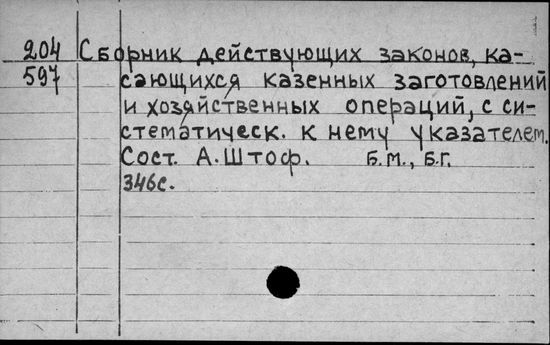 204 Сборник действующих законов, ка-
597 сающихся казенных заготовлений
и хозяйственных операций, с си-
стематическ. к нему указателем.
Сост. А. Штоф. Б.М., Б.Г.
346с.